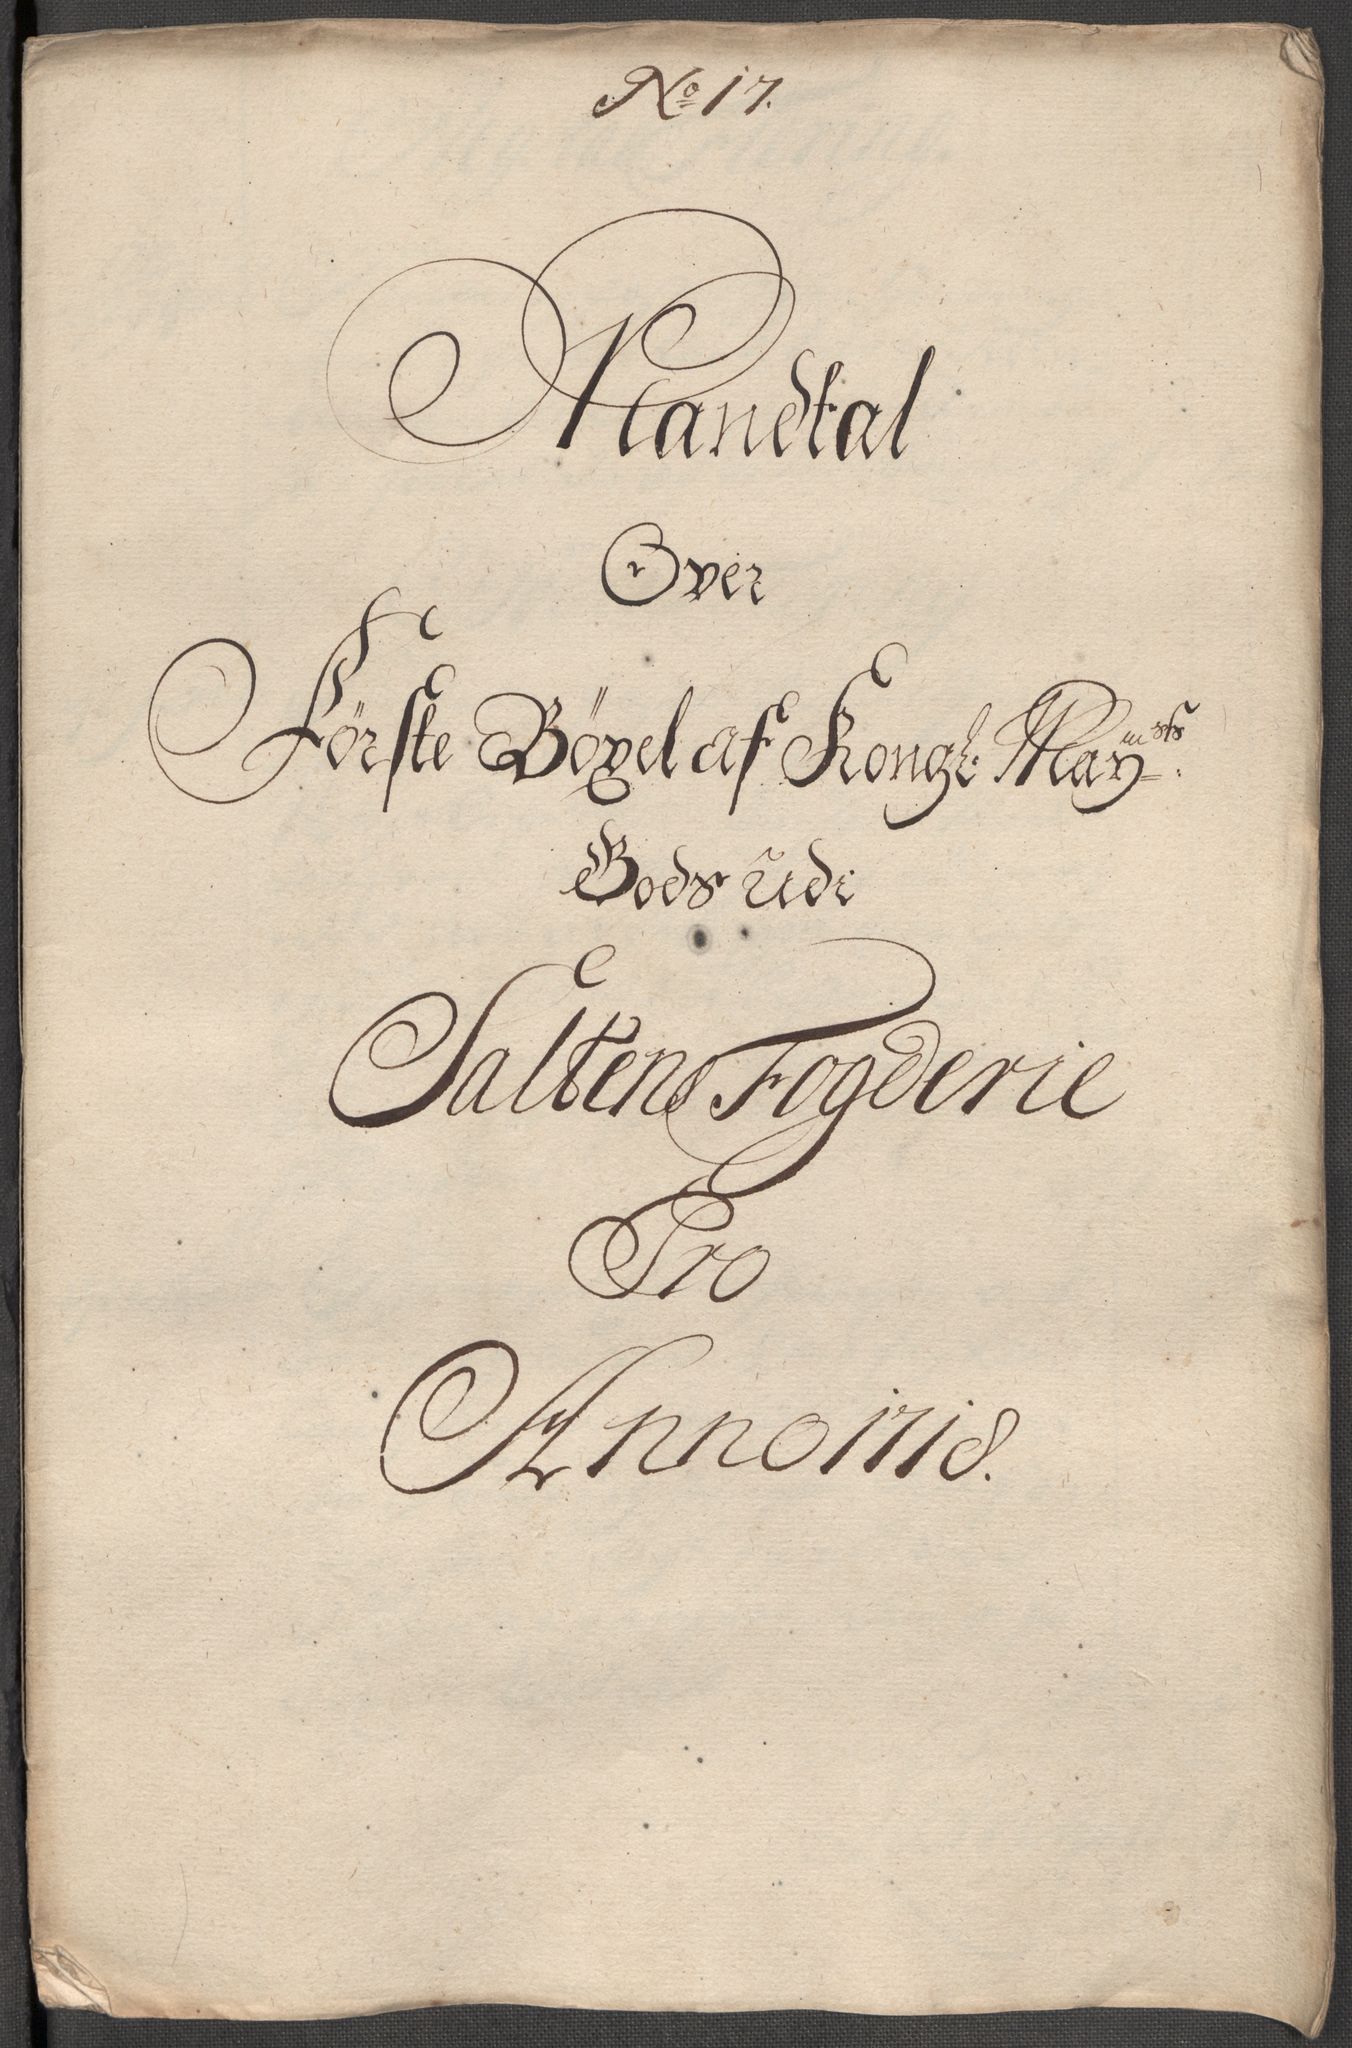 No 17.
Mandtal
Over
Første Bøxel af Kongl: May:sts
Gods udi
Saltens Fogderie
Pro
Anno 1718.